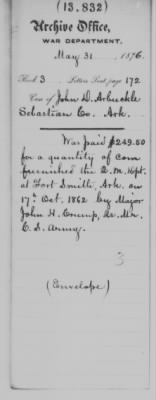 (13,832)
Archive Office,
WAR DEPARTMENT,
May 31 1876.
Book 3 Letters Sent page 172
Case of John D. Arbuckle
Sebastian Co. Ark.
Was paid $249.50
for a quantity of corn
furnished the Q. M. Dept.
at Fort Smith, Ark. on
17th Oct. 1862 by Major
John H. Crump, Qr. Mr.
C. S. Army.
3
(Envelope)